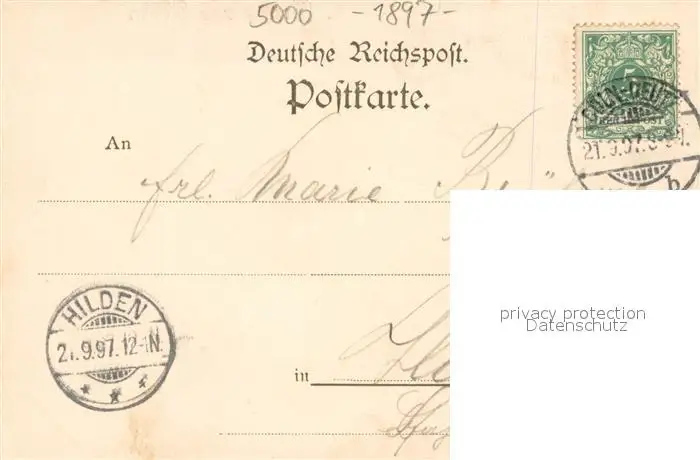 5000 -1897-
Deutsche Reichspost.
Postkarte.
An
Frl. Marie
CÖLN-DEUTZ
21.9.97.8-9V.
b
HILDEN
21.9.97.12-1N.
in
privacy protection
Datenschutz